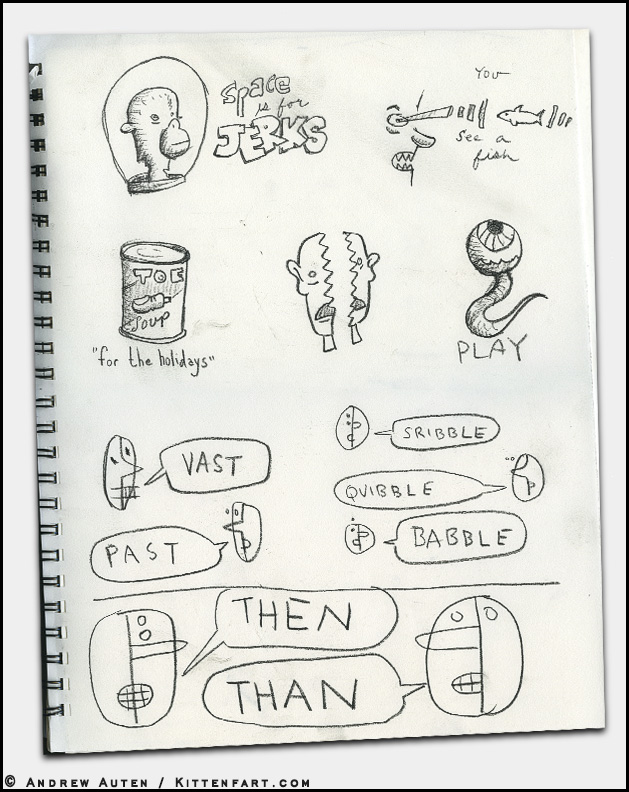 Space
is for
JERKS
You
see a
fish
TOE
SOUP
"for the holidays"
PLAY
VAST
PAST
SRIBBLE
QUIBBLE
BABBLE
THEN
THAN
© ANDREW AUTEN / KITTENFART.COM